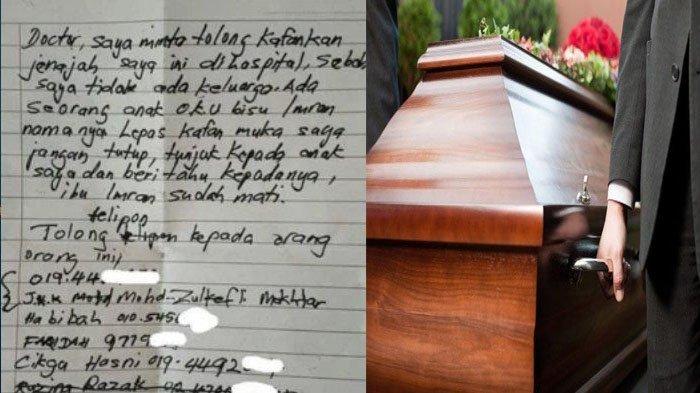 Doctor, saya minta tolong kafankan
jenajah saya ini di hospital, Sebab
saya tidak ada keluarga. Ada
seorang anak o.k.u bisu Imran
namanya Lepas kafan muka saya
jangan tutup, tunjuk kepada anak
saya dan beri tahu kepadanya,
ibu Imran sudah mati.
telipon
Tolong kepada orang
orang ini,
019.44
Mohd-Zulkefli Mokhtar
Habibah 010.545
FARIDAH 9775
Cikga Hosni 019.4492
Razak